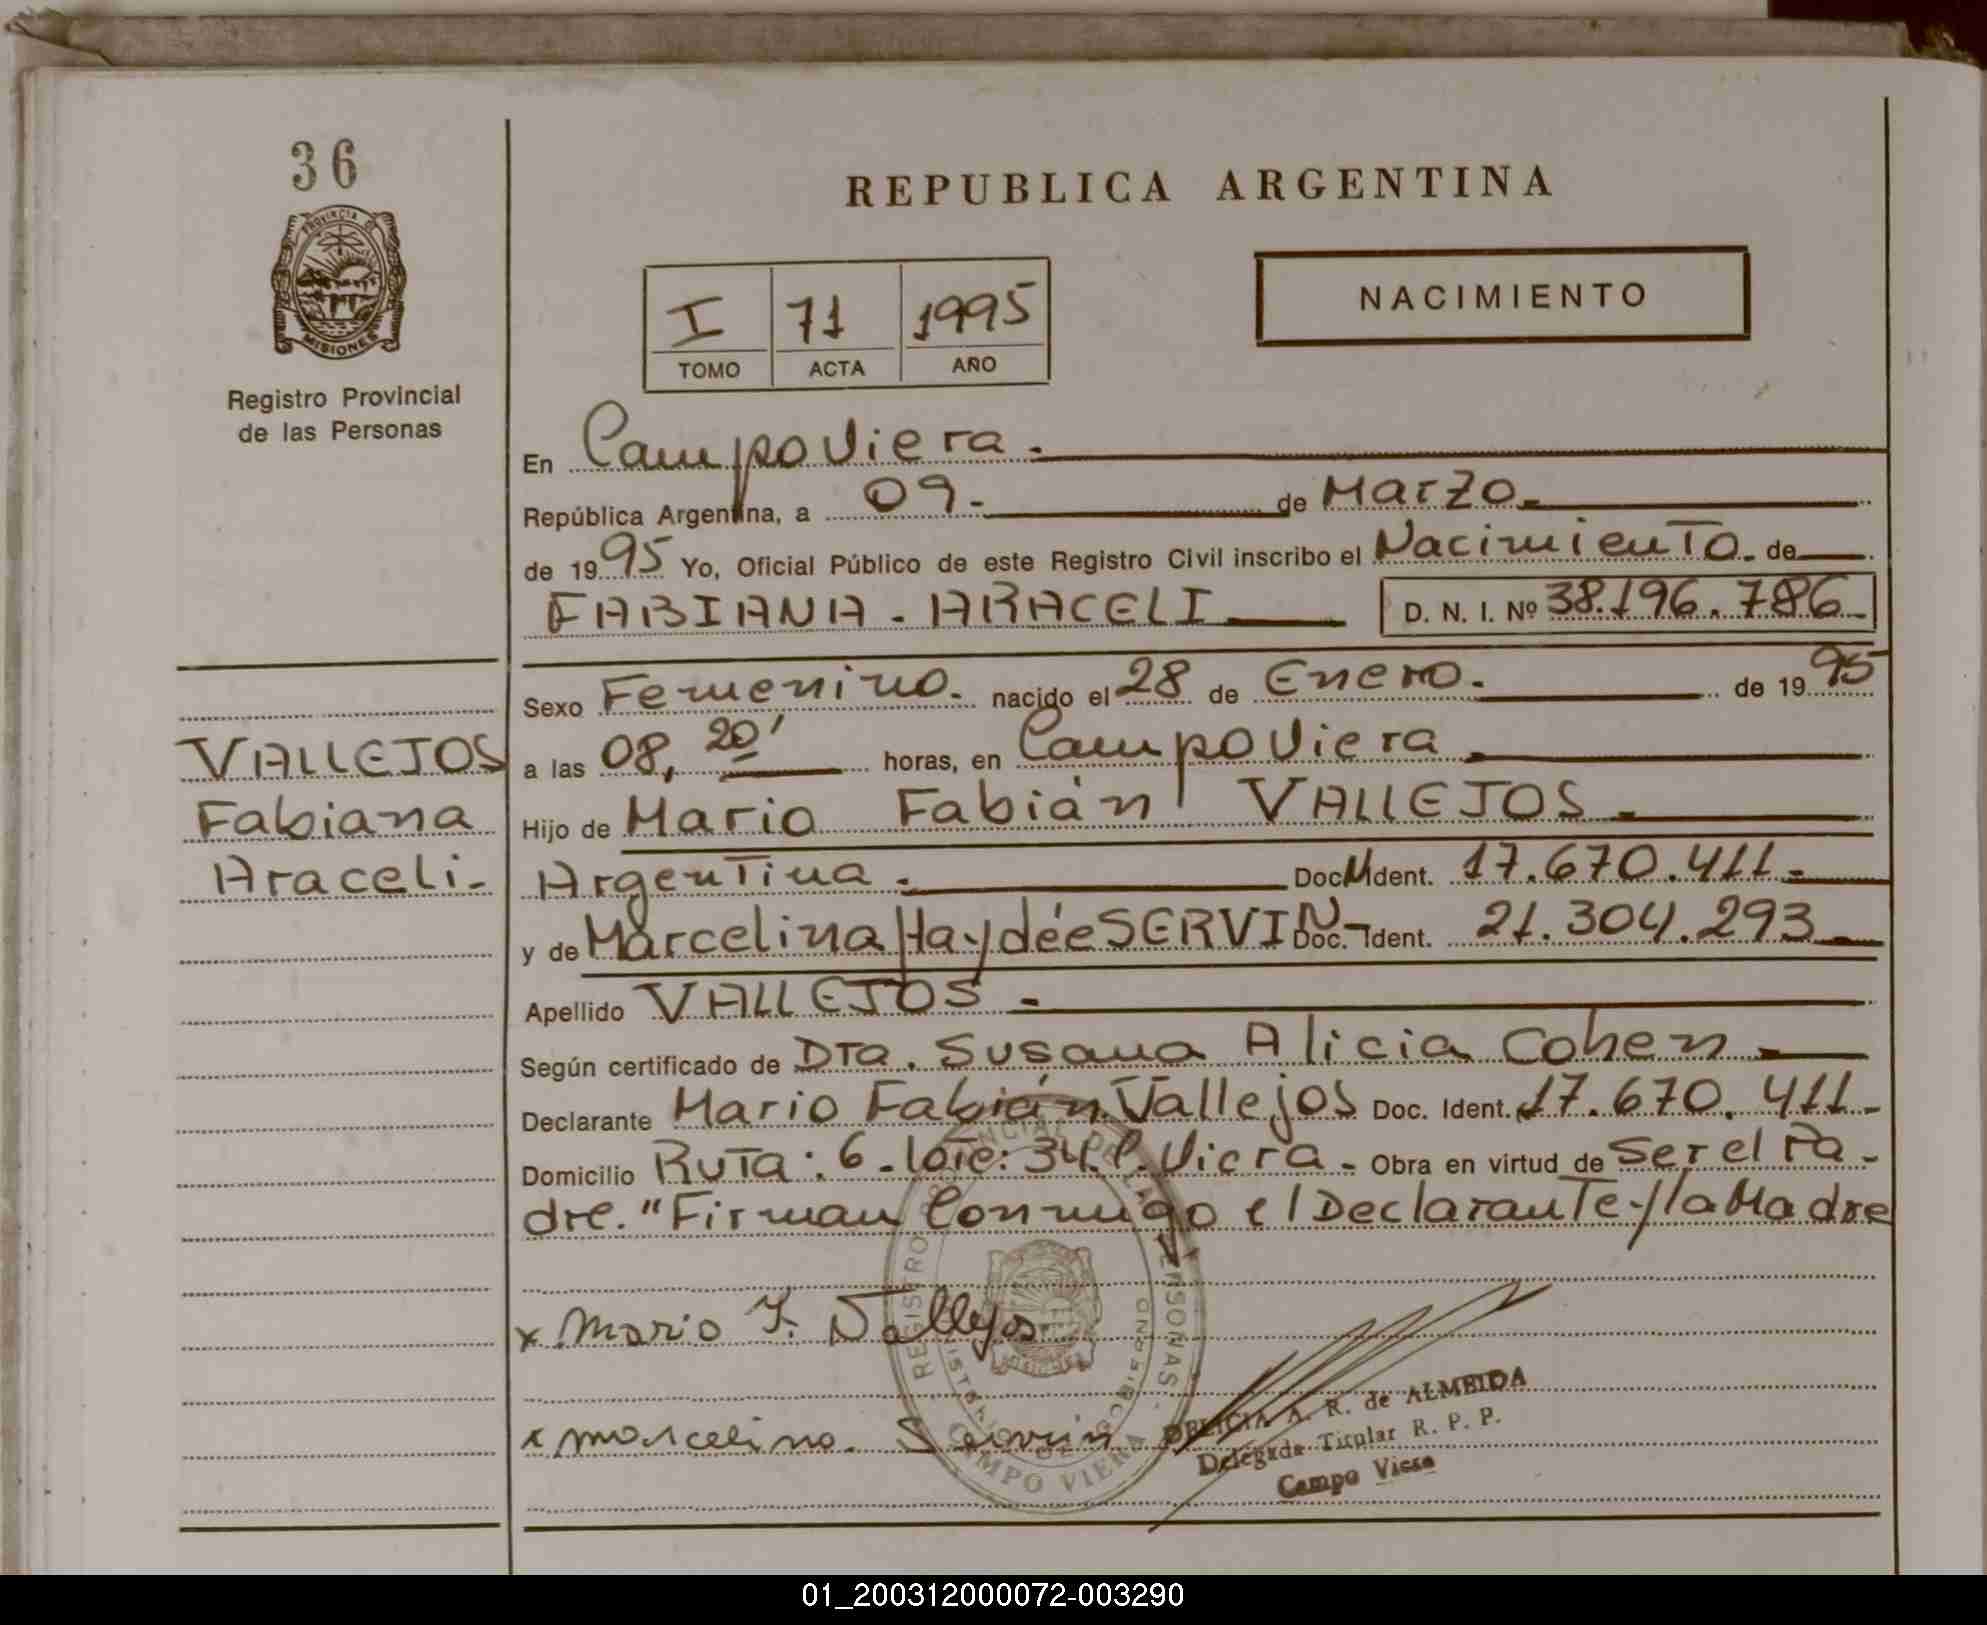 36
PROVINCIA DE
MISIONES
Registro Provincial
de las Personas
REPUBLICA ARGENTINA
I 71 1995
TOMO ACTA AÑO
NACIMIENTO
En Campo Viera.-
República Argentina, a 09.- de Marzo.-
de 1995 Yo, Oficial Público de este Registro Civil inscribo el Nacimiento. de
FABIANA - ARACELI D. N. I. Nº 38.196.786-
Sexo Femenino. nacido el 28 de Enero. de 1995
a las 08, 20' horas, en Campo Viera.-
Hijo de Mario Fabián VALLEJOS.-
Argentina.- Doc. Ident. 17.670.411.-
y de Marcelina Haydée SERVIN.- Doc. Ident. 21.304.293.-
Apellido VALLEJOS.-
Según certificado de Dra. Susana Alicia Cohen.-
Declarante Mario Fabián Vallejos Doc. Ident. 17.670.411.-
Domicilio Ruta: 6 - lote: 34. C. Viera.- Obra en virtud de Ser el Pa-
dre. "Firman Conmigo el Declarante y la Madre
VALLEJOS
Fabiana
Araceli-
x Mario F. Vallejos
x marcelina. Servin
REGISTRO PROVINCIAL DE LAS PERSONAS
MINISTERIO DE GOBIERNO
CAMPO VIERA
DELICIA A. R. de ALMEIDA
Delegada Titular R. P. P.
Campo Viera
01_200312000072-003290